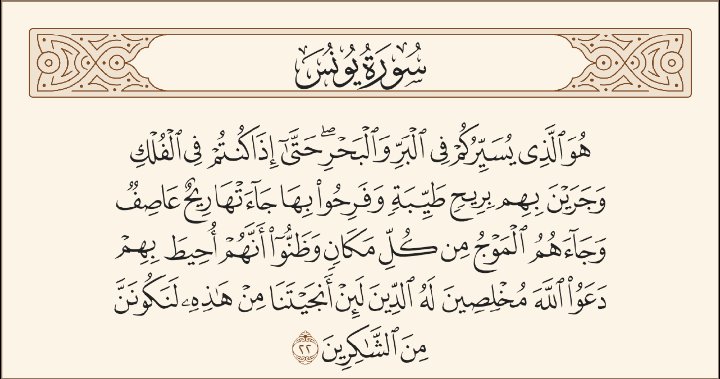 سُورَةُ يُونُسَ
هُوَ ٱلَّذِى يُسَيِّرُكُمْ فِى ٱلْبَرِّ وَٱلْبَحْرِ ۖ حَتَّىٰٓ إِذَا كُنتُمْ فِى ٱلْفُلْكِ
وَجَرَيْنَ بِهِم بِرِيحٍ طَيِّبَةٍ وَفَرِحُوا۟ بِهَا جَآءَتْهَا رِيحٌ عَاصِفٌ
وَجَآءَهُمُ ٱلْمَوْجُ مِن كُلِّ مَكَانٍ وَظَنُّوٓا۟ أَنَّهُمْ أُحِيطَ بِهِمْ
دَعَوُا۟ ٱللَّهَ مُخْلِصِينَ لَهُ ٱلدِّينَ لَئِنْ أَنجَيْتَنَا مِنْ هَٰذِهِۦ لَنَكُونَنَّ
مِنَ ٱلشَّٰكِرِينَ ٢٢